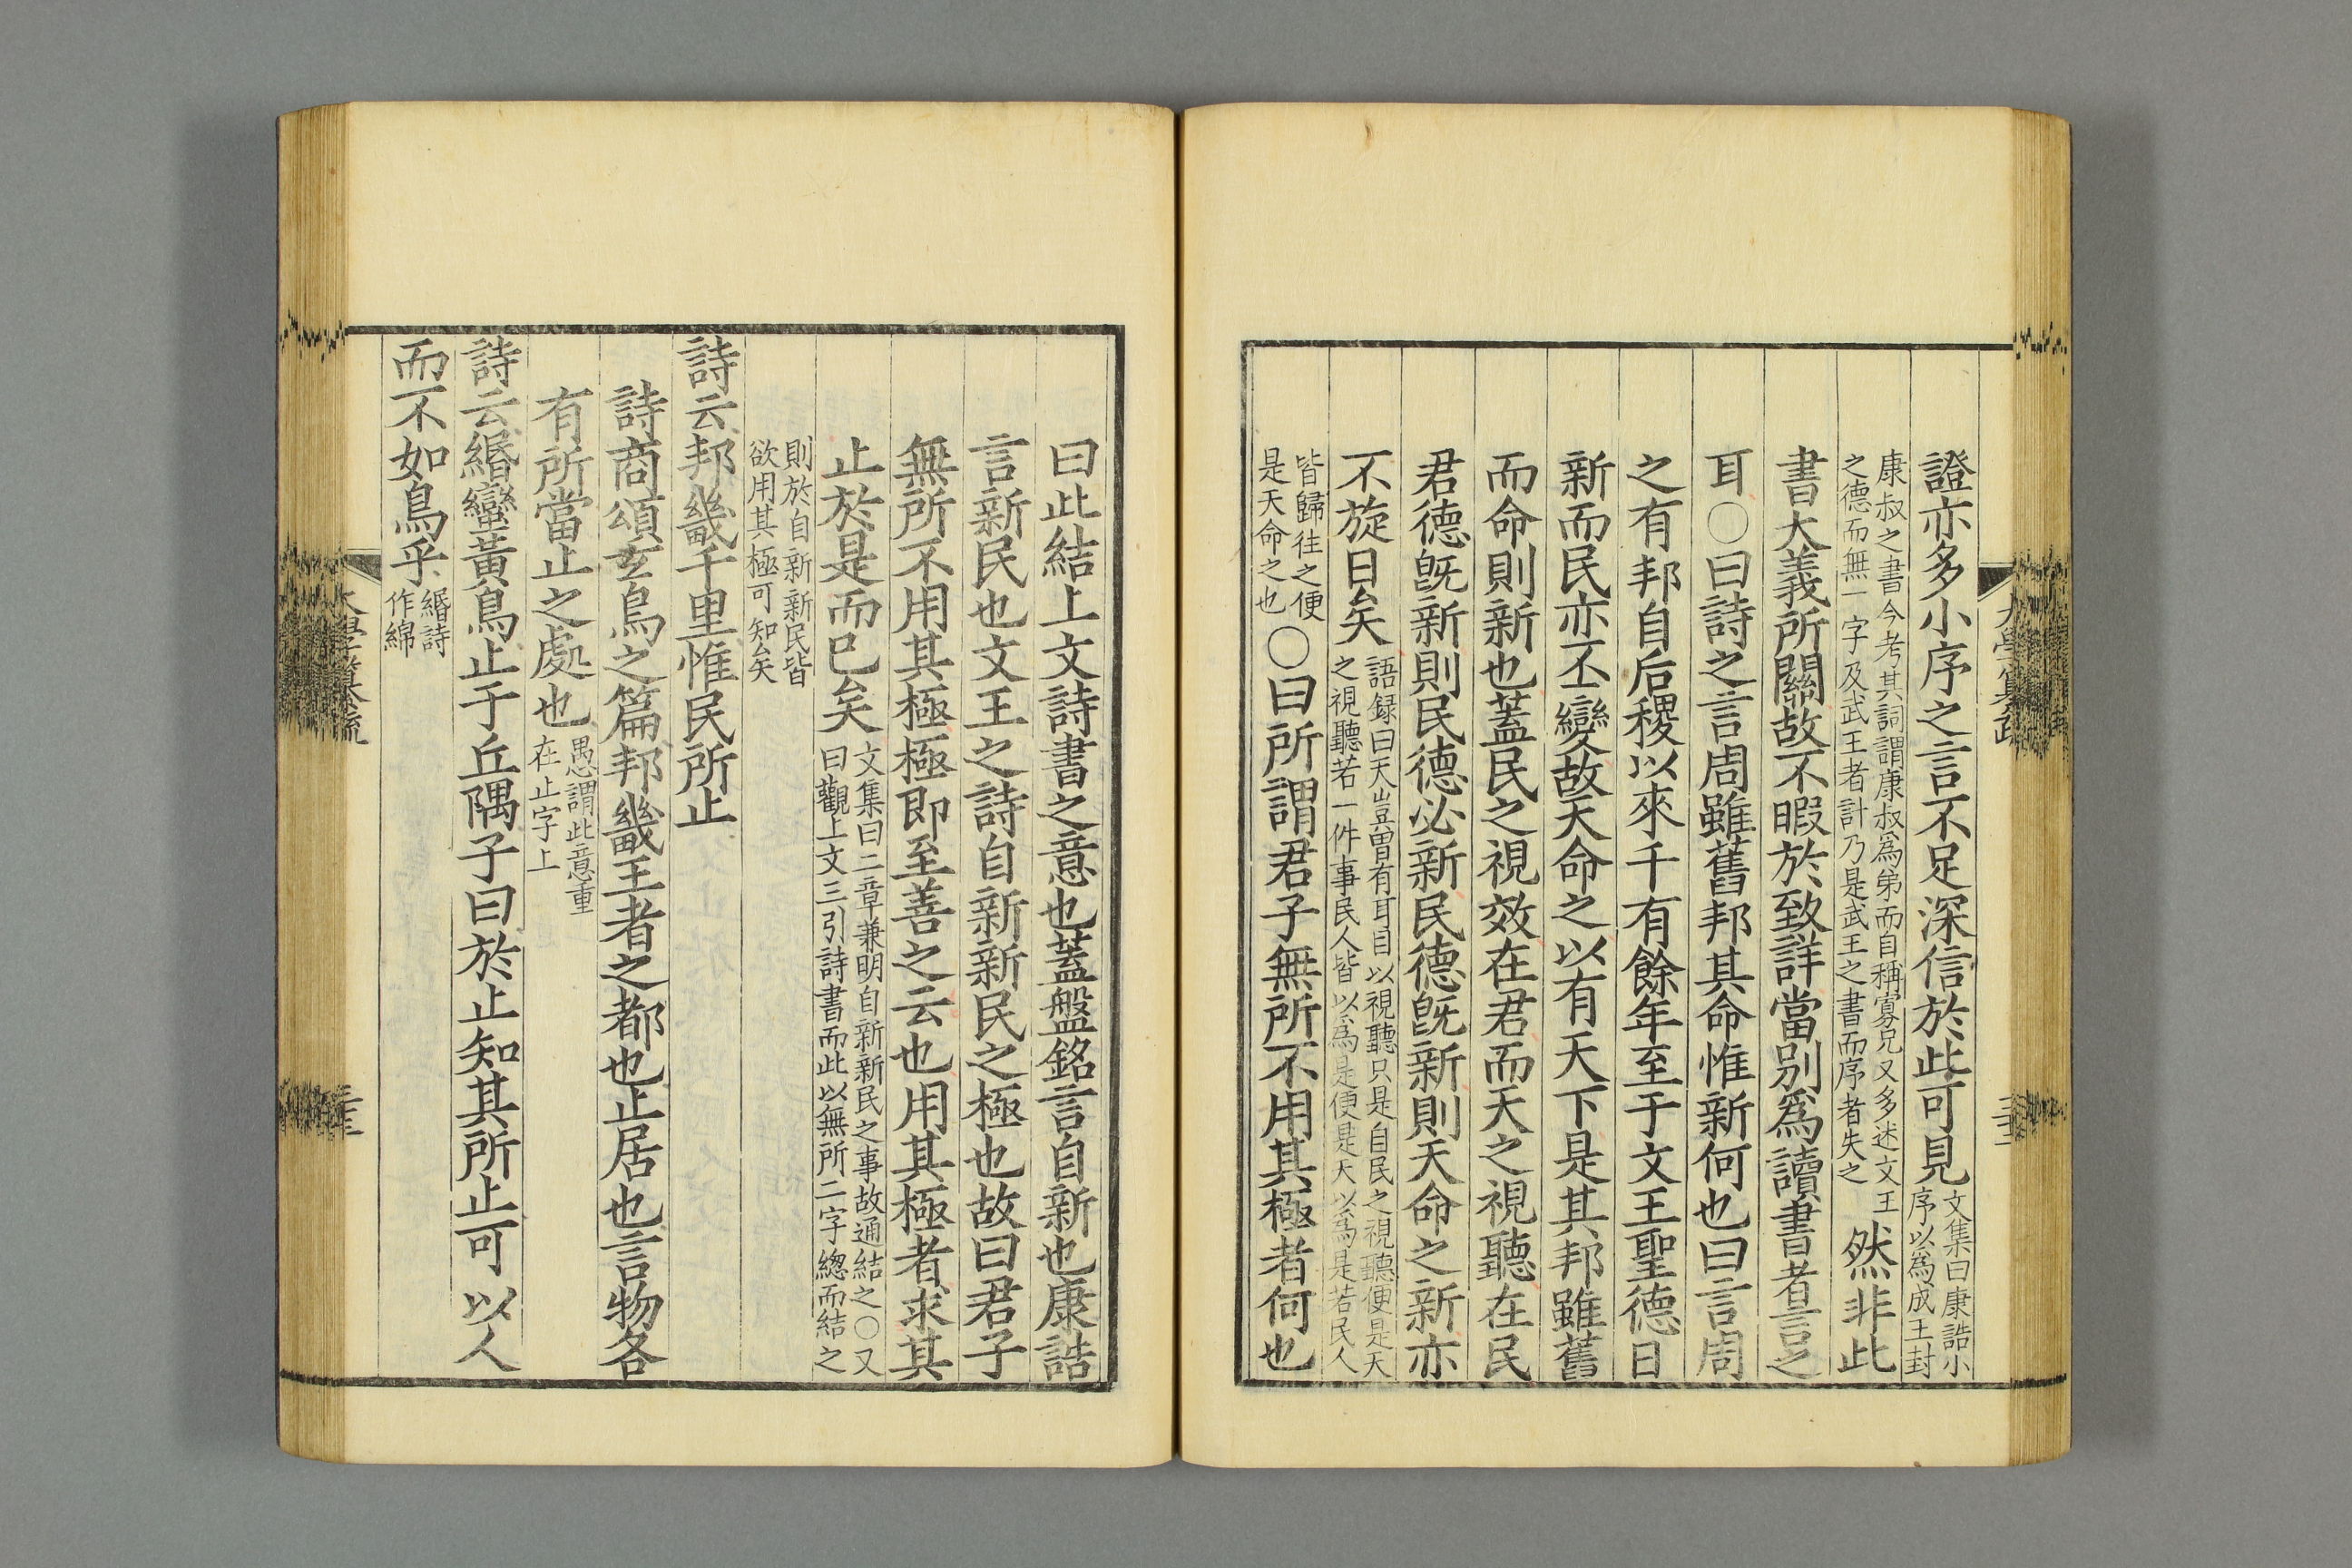 證亦多小序之言不足深信於此可見文集曰康誥小序以為成王封
康叔之書今考其詞謂康叔為弟而自稱寡兄又多述文王之德而無一字及武王者計乃是武王之書而序者失之然非此
書大義所關故不暇於致詳當別為讀書者言之
耳○曰詩之言周雖舊邦其命惟新何也曰言周
之有邦自后稷以來千有餘年至于文王聖德日
新而民亦丕變故天命之以有天下是其邦雖舊
而命則新也蓋民之視效在君而天之視聽在民
君德旣新則民德必新民德旣新則天命之新亦
不旋日矣語録曰天豈曽有耳目以視聽只是自民之視聽便是天之視聽若一件事民人皆以為是便是天以為是若民人
皆歸往之便是天命之也○曰所謂君子無所不用其極者何也
曰此結上文詩書之意也蓋盤銘言自新也康誥
言新民也文王之詩自新新民之極也故曰君子
無所不用其極極即至善之云也用其極者求其
止於是而已矣文集曰二章兼明自新新民之事故通結之○又曰觀上文三引詩書而此以無所二字總而結之
則於自新新民皆欲用其極可知矣
詩云邦畿千里惟民所止
詩商頌玄鳥之篇邦畿王者之都也止居也言物各
有所當止之處也愚謂此意重在止字上
詩云緡蠻黃鳥止于丘隅子曰於止知其所止可以人
而不如鳥乎緡詩作綿
大學纂疏